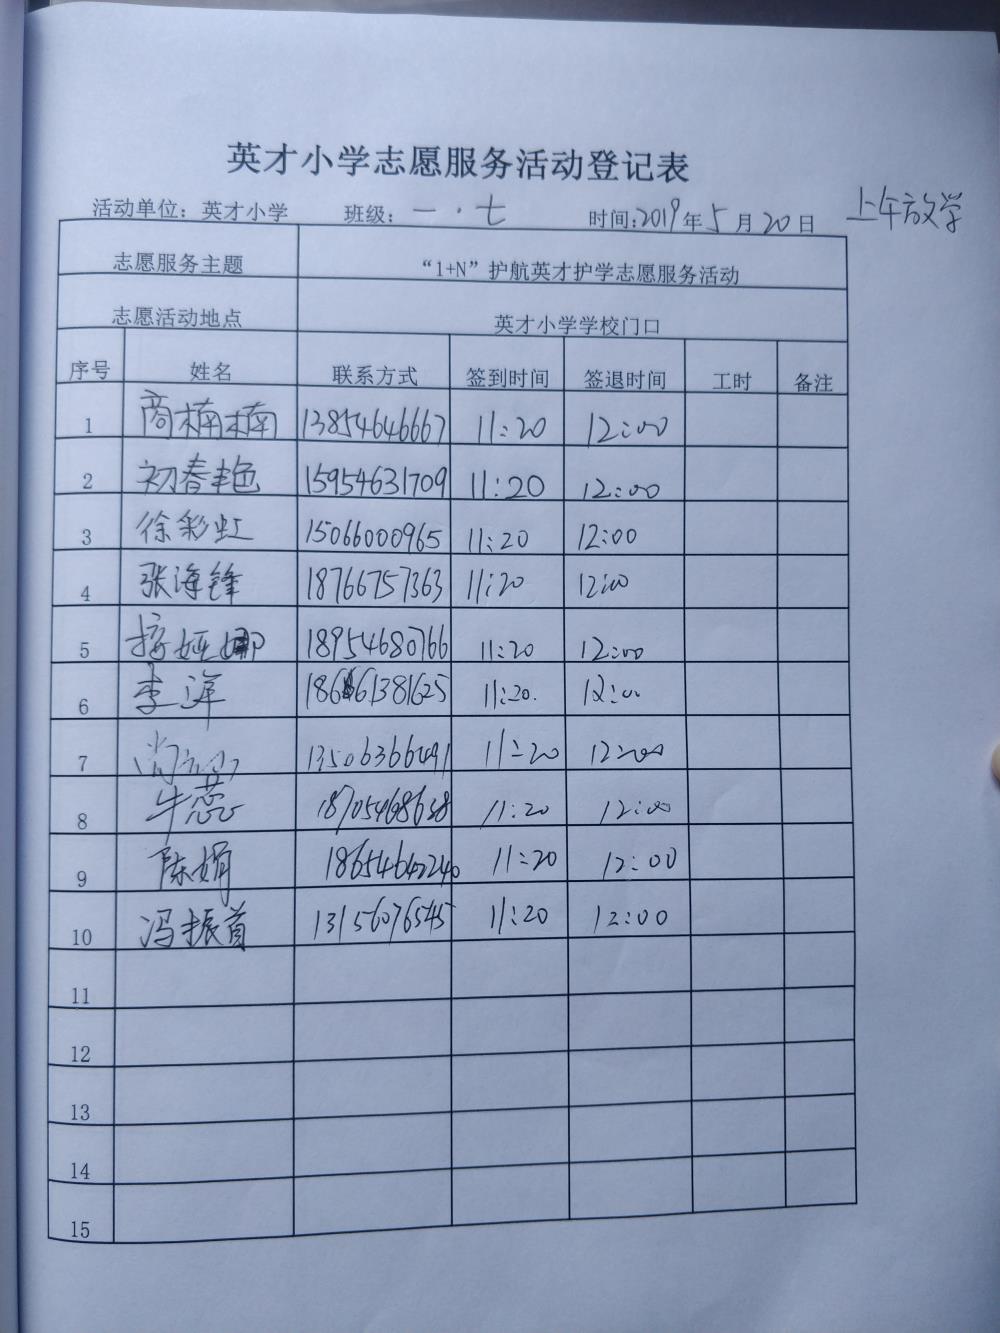 英才小学志愿服务活动登记表
活动单位：英才小学 班级：一·七 时间:2019年5月20日 上午放学
志愿服务主题 “1+N”护航英才护学志愿服务活动
志愿活动地点 英才小学学校门口
序号 姓名 联系方式 签到时间 签退时间 工时 备注
1 商楠楠 13854646667 11:20 12:00
2 初春艳 15954631709 11:20 12:00
3 徐彩虹 15066000965 11:20 12:00
4 张海锋 18766757363 11:20 12:00
5 18954680766 11:20 12:00
6 李洋 11:20. 12:00
7 11:20 12:00
8 牛蕊 11:20 12:00
9 陈娟 18654642240 11:20 12:00
10 冯振首 13156076545 11:20 12:00
11
12
13
14
15